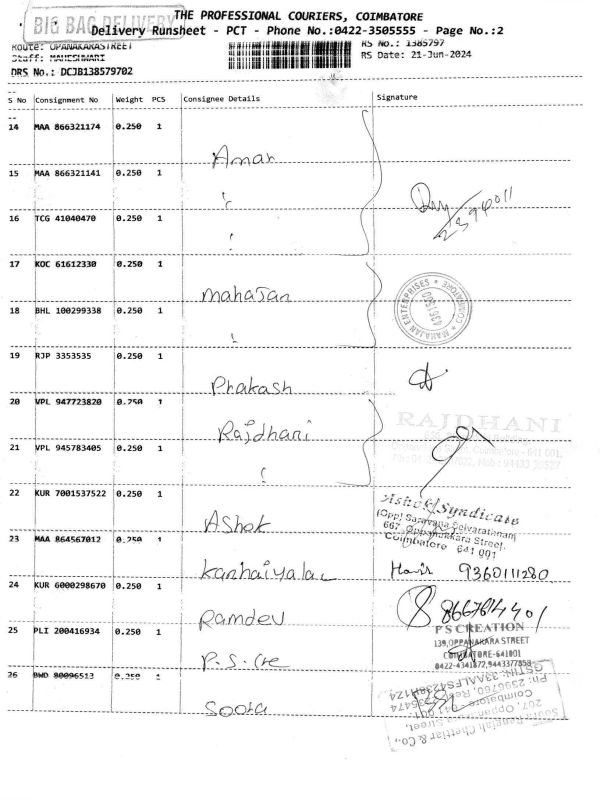 BIG BAG DELIVERY
THE PROFESSIONAL COURIERS, COIMBATORE
Delivery Runsheet - PCT - Phone No.:0422-3505555 - Page No.:2
Route: OPANAKARASTREET
RS No.: 1385797
Staff: MAHESHWARI
RS Date: 21-Jun-2024
DRS No.: DCJB138579702
S No Consignment No Weight PCS Consignee Details Signature
14 MAA 866321174 0.250 1 Aman
15 MAA 866321141 0.250 1
2394011
16 TCG 41040470 0.250 1
17 KOC 61612330 0.250 1 mahajan
MAHAJAN ENTERPRISES * COIMBATORE *
18 BHL 100299338 0.250 1
19 RJP 3353535 0.250 1 Phakash
20 VPL 947723820 0.250 1 Rajdhani
RAJDHANI
21 VPL 945783405 0.250 1
22 KUR 7001537522 0.250 1 AShok
Ashok Syndicate
(Opp) Saravana Selvaratanam
667, Oppanakkara Street,
Coimbatore 641 001
23 MAA 864567012 0.250 1 Kanhaiyalal
9360111280
24 KUR 6000298670 0.250 1 Ramdev
8667814401
25 PLI 200416934 0.250 1 P.S. Cre
P S CREATION
139,OPPANAKARA STREET
COIMBATORE-641001
0422-4341872,9443377858
26 BWD 80096513 0.250 1 Soota
Rangiah Chettiar & Co.,
207, Oppanakara Street,
Coimbatore - 641 001